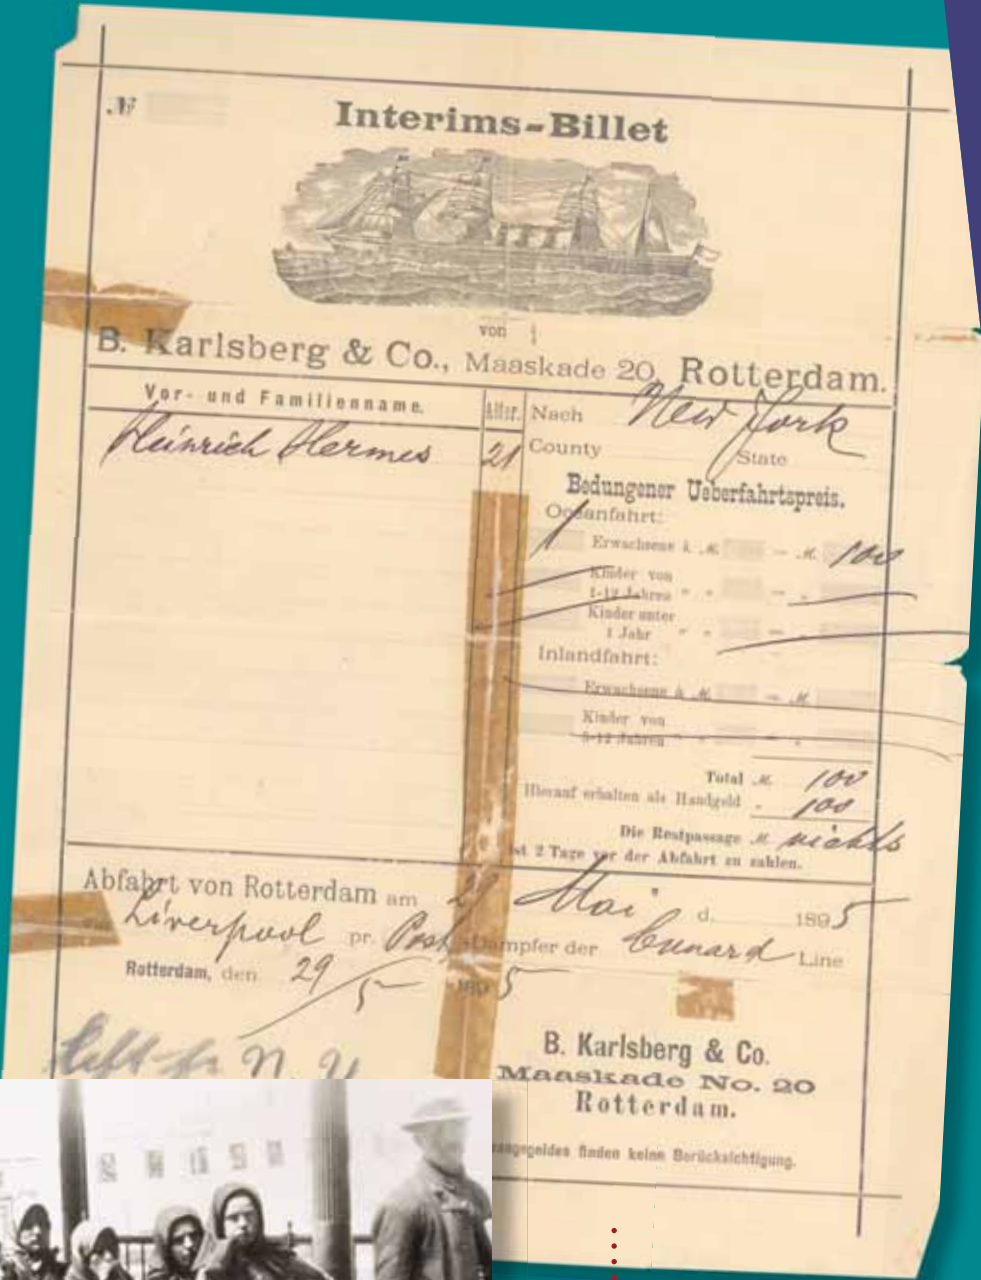 №
Interims-Billet
von
B. Karlsberg & Co., Maaskade 20, Rotterdam.
Vor- und Familienname.
Alter.
Heinrich Hermes
21
Nach New York
County State
Bedungener Ueberfahrtspreis.
Oceanfahrt:
1 Erwachsene à M. — M. 100
Kinder von
1-12 Jahren " " — "
Kinder unter
1 Jahr " " — "
Inlandfahrt:
Erwachsene à M. — M.
Kinder von
Jahren " " — "
Total M. 100
Hierauf erhalten als Handgeld " 100
Die Restpassage M. nichts
ist 2 Tage vor der Abfahrt zu zahlen.
Abfahrt von Rotterdam am 29 Mai d. 1895
Liverpool pr. Post Dampfer der Cunard Line
Rotterdam, den 29/5 1895
Left for N. Y.
B. Karlsberg & Co.
Maaskade No. 20
Rotterdam.
finden keine Berücksichtigung.